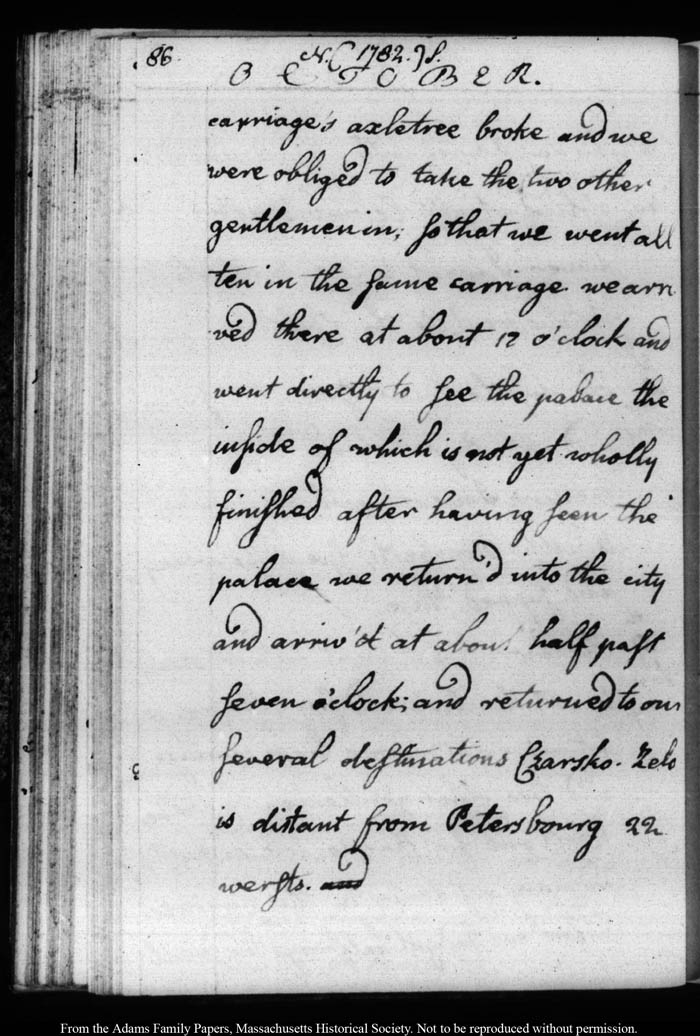 86
N.( 1782. )S.
OCTOBER.
carriage's axletree broke and we
were obliged to take the two other
gentlemen in; so that we went all
ten in the same carriage we arri
ved there at about 12 o'clock and
went directly to see the palace the
inside of which is not yet wholly
finished after having seen the
palace we return'd into the city
and arriv'd at about half past
seven o'clock; and returned to our
several destinations Czarsko-Zelo
is distant from Petersbourg 22
wersts. and
From the Adams Family Papers, Massachusetts Historical Society. Not to be reproduced without permission.